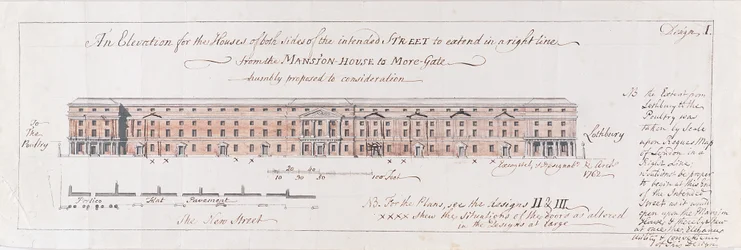 Design, I.
An Elevation for the Houses of both sides of the intended STREET to extend in a right line
from the MANSION-HOUSE to More-Gate
humbly proposed to consideration
To
The
Poultry
Lothbury
1762
20 40
10 30 50 100 feet
Portico Flat Pavement
The New Street
NB. For the Plans, see the designs II & III
xxxx shew the situations of the doors as altered
in the designs at large
NB the Extent from
Lothbury to the
Poultry was
taken by Scale
upon Roques Map
of London in a
Right Line
to begin at this End
of the Intended
Street as it would
open upon the Mansion
House